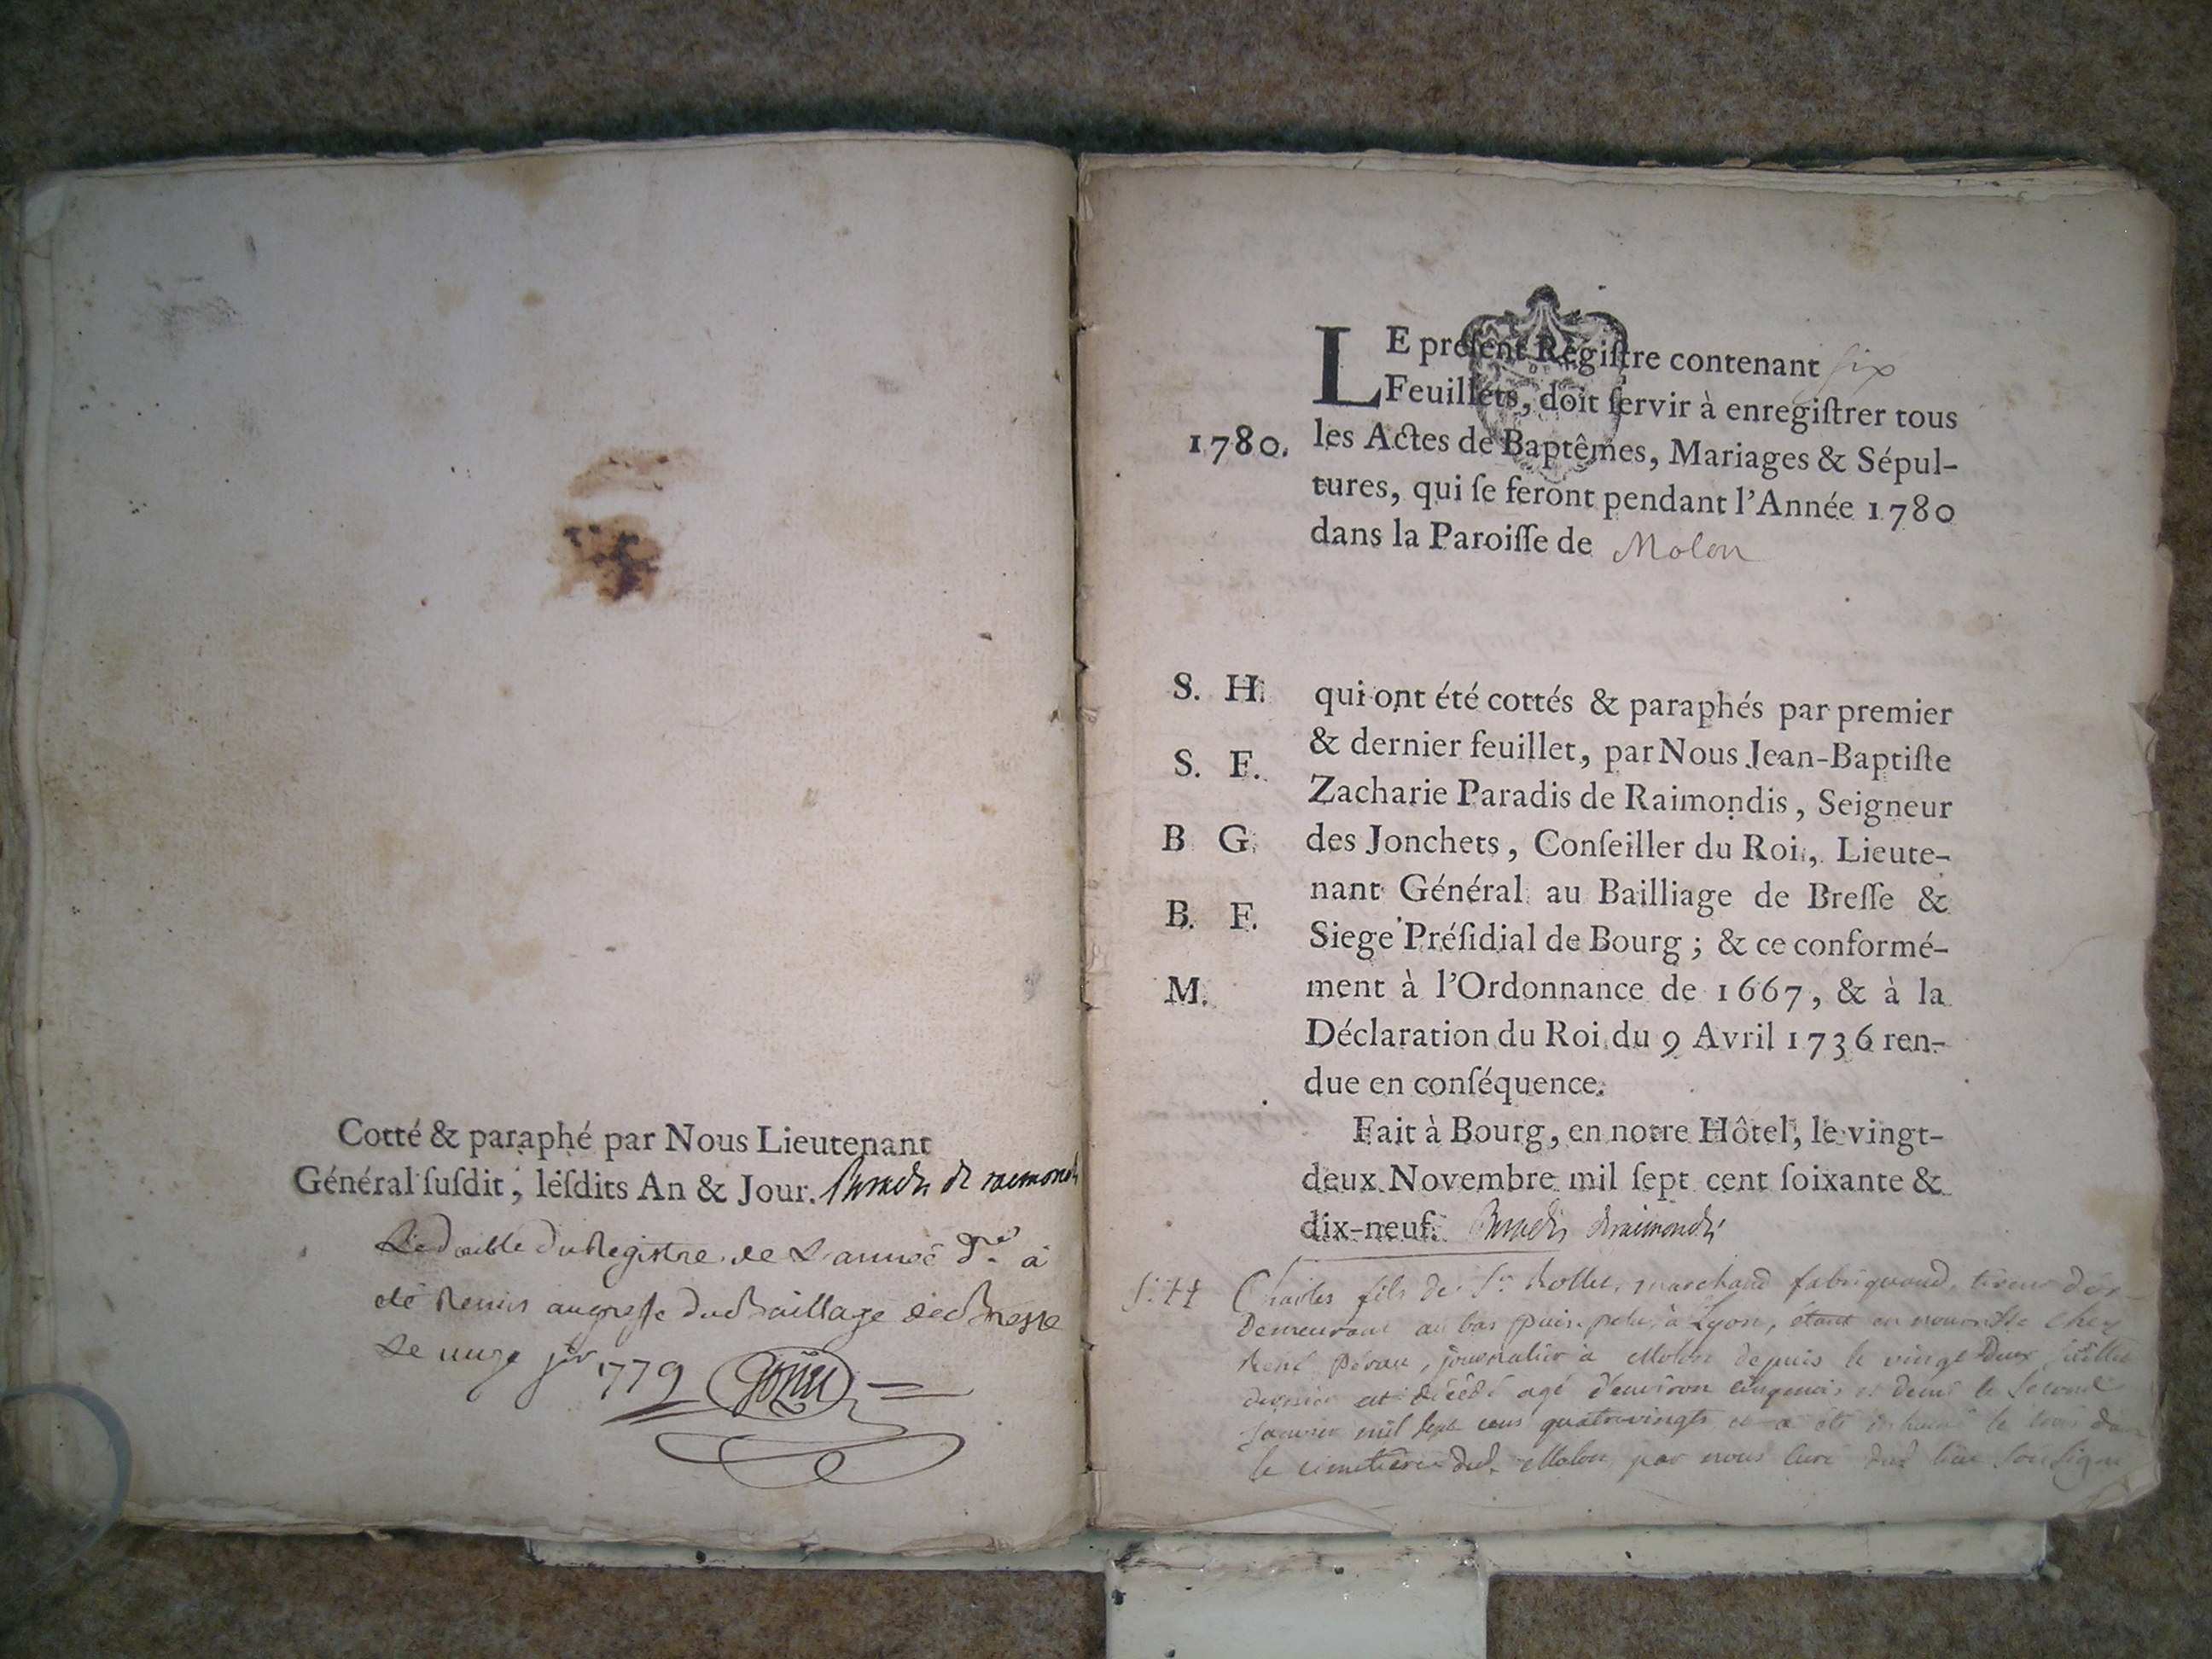 Cotté & paraphé par Nous Lieutenant
Général ſuſdit, leſdits An & Jour. Paradis de raimondis
Le double du Registre de L'année d.re a
eté Remis au greffe du Bailliage de Bresse
Le unze j.er 1779
LE preſent Regiſtre contenant six
Feuillets, doit ſervir à enregiſtrer tous
1780. les Actes de Baptêmes, Mariages & Sépul-
tures, qui ſe feront pendant l'Année 1780
dans la Paroiſſe de Molon
S. H. qui ont été cottés & paraphés par premier
& dernier feuillet, par Nous Jean-Baptiſte
S. F. Zacharie Paradis de Raimondis, Seigneur
B G. des Jonchets, Conſeiller du Roi, Lieute-
nant Général au Bailliage de Breſſe &
B. F. Siege Préſidial de Bourg; & ce conformé-
M. ment à l'Ordonnance de 1667, & à la
Déclaration du Roi du 9 Avril 1736 ren-
due en conſéquence.
Fait à Bourg, en notre Hôtel, le vingt-
deux Novembre mil ſept cent ſoixante &
dix-neuf. Paradis deraimondis
Charles fils de S.r Rollet, marchand fabriquand, tireur d'or
Demeurant au bas puis-pelu, à Lyon, étant en nourrisse chez
René, journalier a Molon depuis le vingt Deux juillet
dernier est décédé agé d'environ cinq mois et demi le second
Janvier mil sept cens quatrevingts et a été inhumé le trois dans
le cimetiere dud. Molon, par nous curé dud lieu soussigné